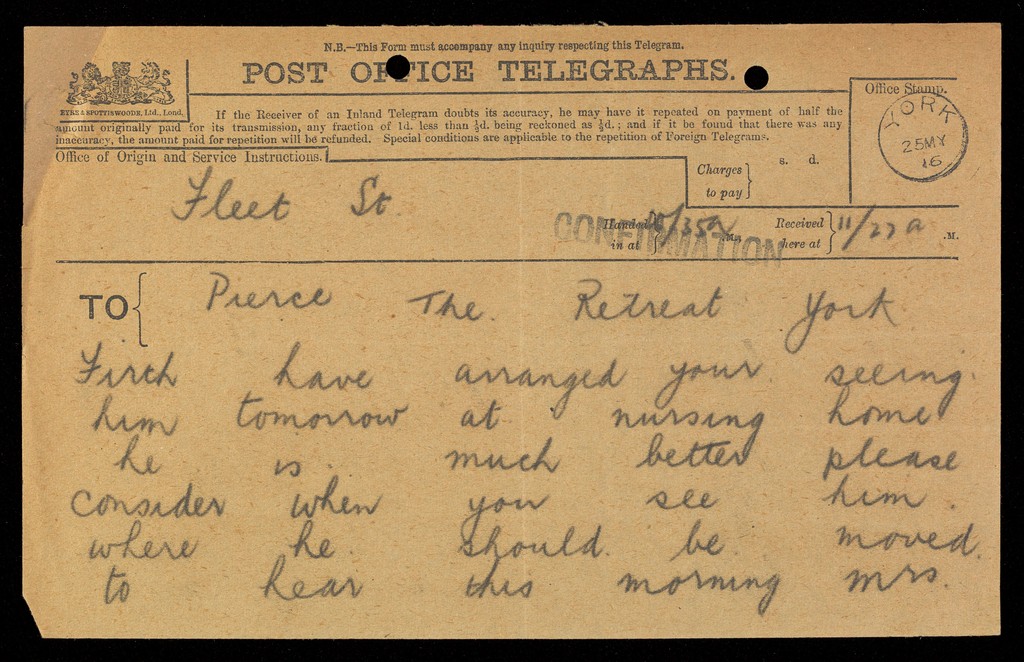 N.B.—This Form must accompany any inquiry respecting this Telegram.
POST OFFICE TELEGRAPHS.
EYRE & SPOTTISWOODE, Ltd., Lond.
If the Receiver of an Inland Telegram doubts its accuracy, he may have it repeated on payment of half the
amount originally paid for its transmission, any fraction of 1d. less than ½d. being reckoned as ½d.; and if it be found that there was any
inaccuracy, the amount paid for repetition will be refunded. Special conditions are applicable to the repetition of Foreign Telegrams.
Office of Origin and Service Instructions.
Office Stamp.
YORK
25 MY
16
Charges
to pay
s. d.
Fleet St.
CONFIRMATION
Handed
in at
.M.
Received
here at
11/27 a
.M.
TO
Pierce The Retreat York
Firth have arranged your seeing
him tomorrow at nursing home
he is much better please
consider when you see him
where he should be moved
to hear this morning mrs.